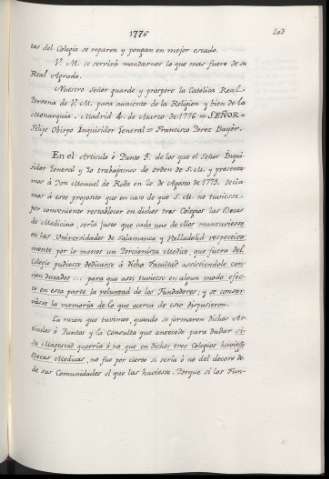 1776
tas del Colegio se reparen y pongan en mejor estado.
V. M. se servirá mandarnos lo que mas fuere de su
Real Agrado.
Nuestro Señor guarde y prospere la Católica Real
Persona de V. M. para aumento de la Religion y bien de la
Monarquia. Madrid 4. de Marzo de 1776 = SEÑOR =
Felipe Obispo Inquisidor General = Francisco Perez Bayér.
En el Articulo ó Punto 5. de los que el Señor Inqui-
sidor General y Yo trabajamos de orden de S. M. y presenta-
mos á Don Manuel de Roda en 10 de Agosto de 1775. Decia-
mos á este proposito que en caso de que S. M. no tuviesse
por conveniente restablecer en dichos tres Colegios las Becas
de Medicina, seria justo que cada uno de ellos mantuviesse
en las Universidades de Salamanca y Valladolid respectiva-
mente por lo menos un Porcionista Medico, que fuera del
Colegio pudiesse dedicarse á dicha Facultad assistiendole con
cien Ducados ... para que assi tuviesse en algun modo efec-
to en esta parte la voluntad de los Fundadores; y se conser-
vasse la memoria de lo que acerca de esto dispusieron.
La razon que tuvimos, quando se formaron dichos Ar-
ticulos ó Puntos y la Consulta que antecede para dudar si
Su Magestad querria ó no que en dichos tres Colegios huviesse
Becas Medicas, no fue por cierto si sería ó no del decoro de
de sus Comunidades el que las huviesse. Porque si los Fun-